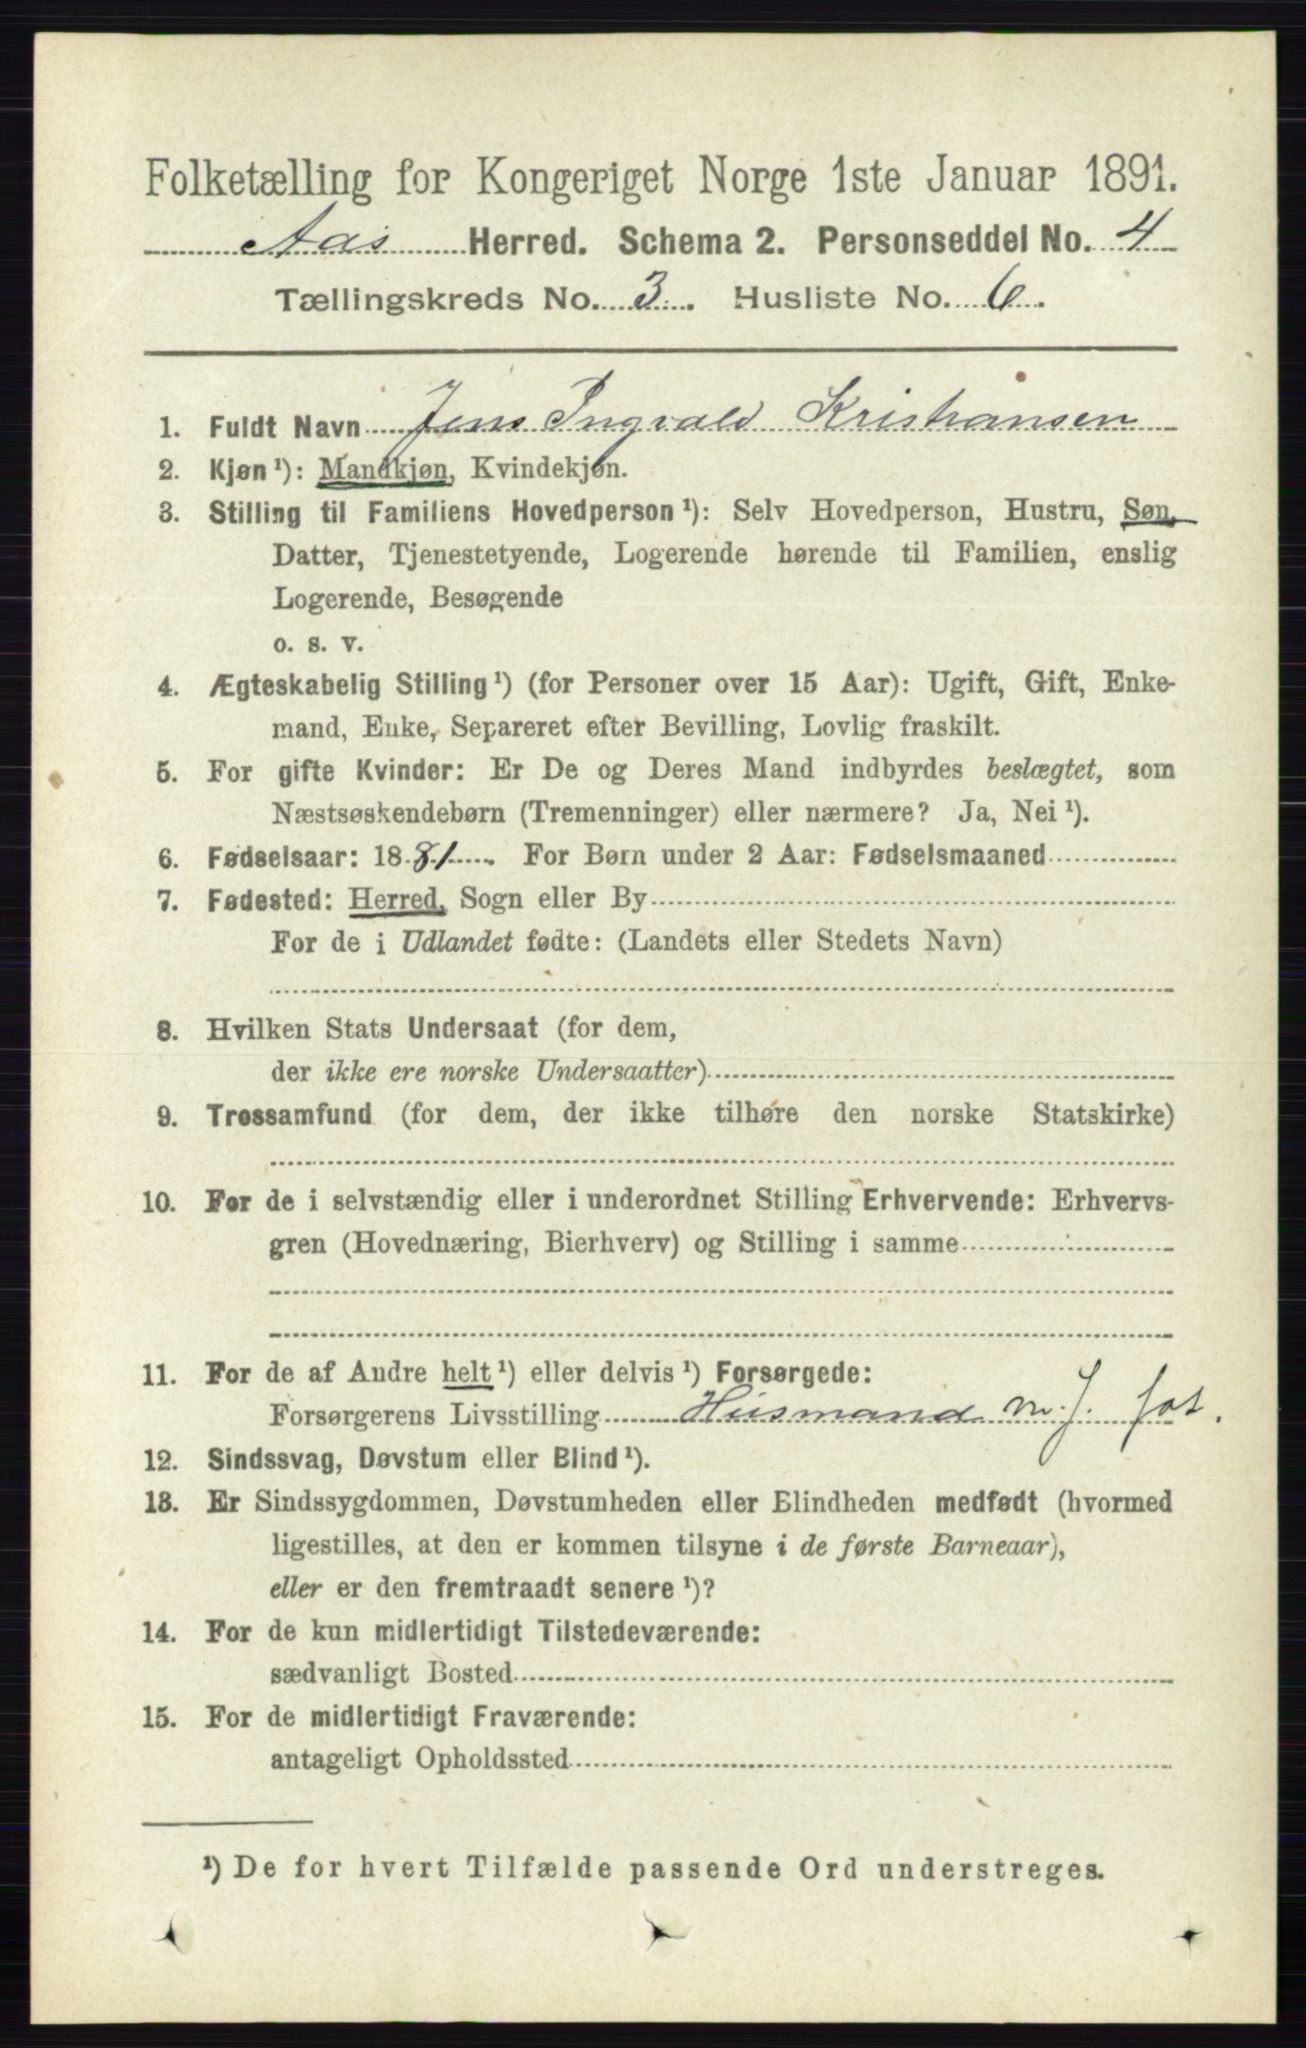 Folketælling for Kongeriget Norge 1ste Januar 1891.
Aas Herred. Schema 2. Personseddel No. 4
Tællingskreds No. 3. Husliste No. 6.
1. Fuldt Navn Jens Ingvald Kristiansen
2. Kjøn ¹): Mandkjøn, Kvindekjøn.
3. Stilling til Familiens Hovedperson ¹): Selv Hovedperson, Hustru, Søn,
Datter, Tjenestetyende, Logerende hørende til Familien, enslig
Logerende, Besøgende
o. s. v.
4. Ægteskabelig Stilling ¹) (for Personer over 15 Aar): Ugift, Gift, Enke-
mand, Enke, Separeret efter Bevilling, Lovlig fraskilt.
5. For gifte Kvinder: Er De og Deres Mand indbyrdes beslægtet, som
Næstsøskendebørn (Tremenninger) eller nærmere? Ja, Nei ¹).
6. Fødselsaar: 1881. For Børn under 2 Aar: Fødselsmaaned
7. Fødested: Herred, Sogn eller By
For de i Udlandet fødte: (Landets eller Stedets Navn)
8. Hvilken Stats Undersaat (for dem,
der ikke ere norske Undersaatter)
9. Trossamfund (for dem, der ikke tilhøre den norske Statskirke)
10. For de i selvstændig eller i underordnet Stilling Erhvervende: Erhvervs-
gren (Hovednæring, Bierhverv) og Stilling i samme
11. For de af Andre helt ¹) eller delvis ¹) Forsørgede:
Forsørgerens Livsstilling Husmand m. J.
12. Sindssvag, Døvstum eller Blind ¹).
13. Er Sindssygdommen, Døvstumheden eller Blindheden medfødt (hvormed
ligestilles, at den er kommen tilsyne i de første Barneaar),
eller er den fremtraadt senere ¹)?
14. For de kun midlertidigt Tilstedeværende:
sædvanligt Bosted
15. For de midlertidigt Fraværende:
antageligt Opholdssted
¹) De for hvert Tilfælde passende Ord understreges.